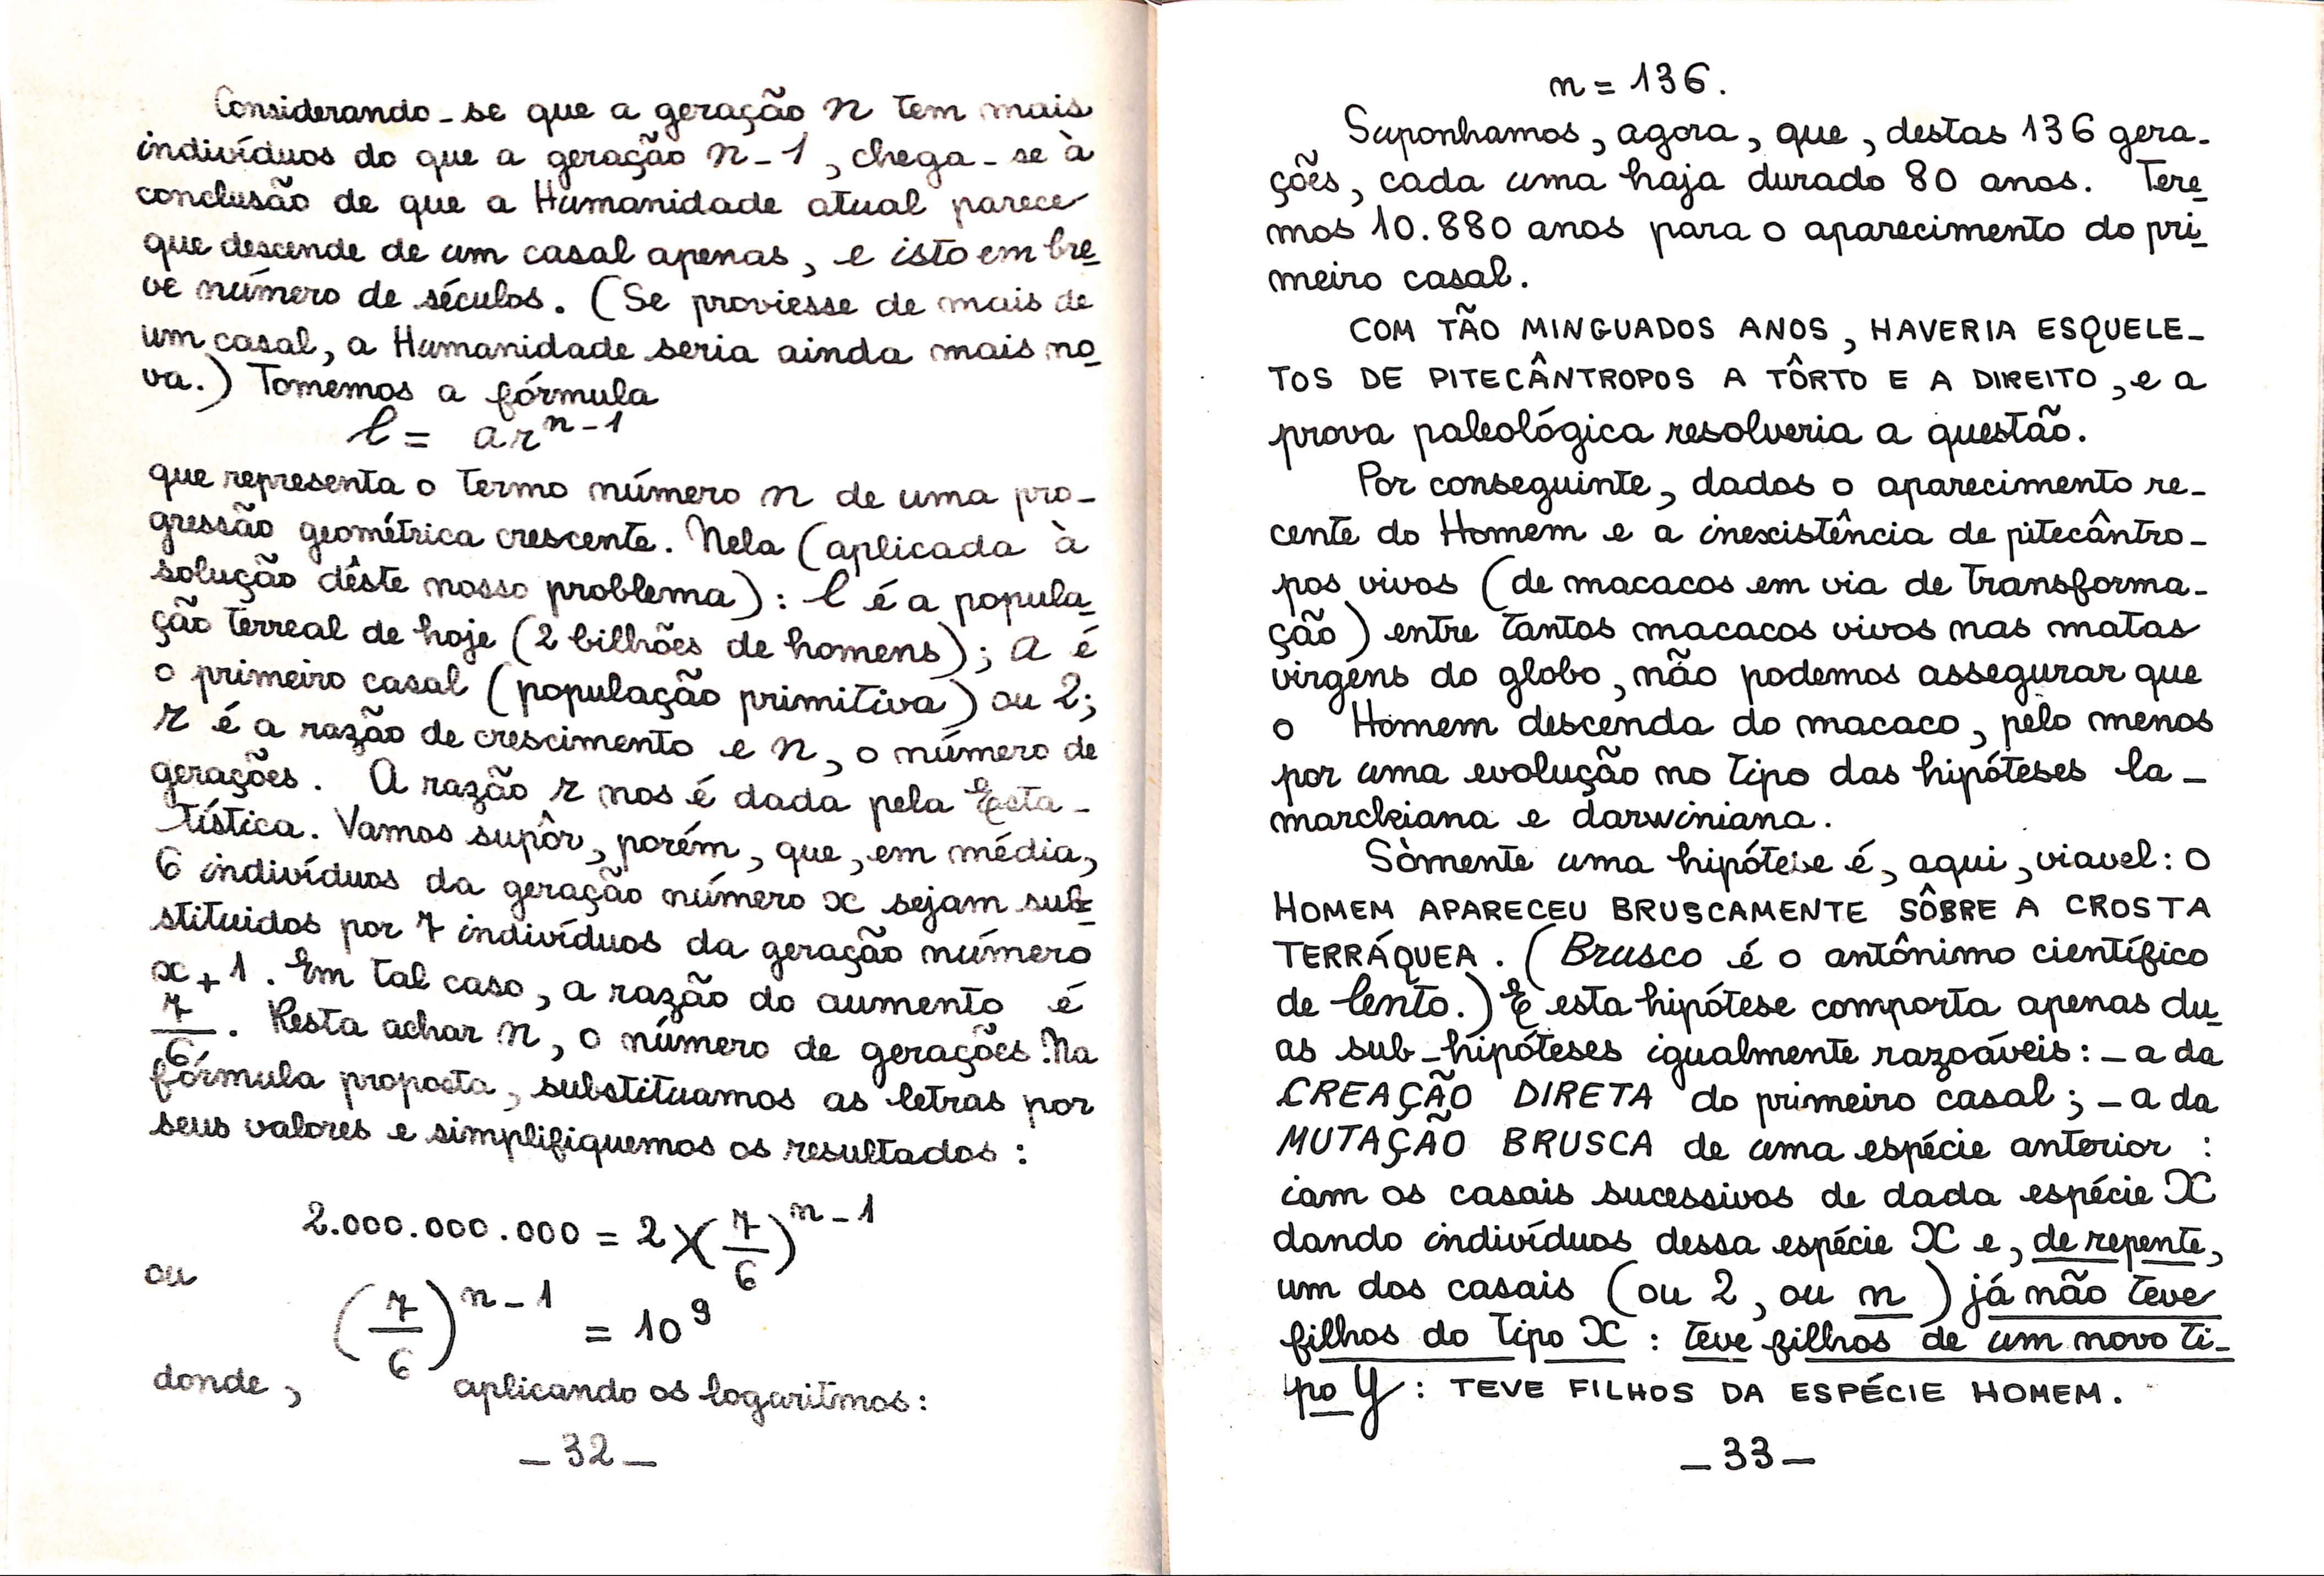 Considerando-se que a geração n tem mais
indivíduos do que a geração n-1, chega-se à
conclusão de que a Humanidade atual parece
que descende de um casal apenas, e isto em bre
ve número de séculos. (Se proviesse de mais de
um casal, a Humanidade seria ainda mais no
va.) Tomemos a fórmula
l = ar^{n-1}
que representa o termo número n de uma pro-
gressão geométrica crescente. Nela (aplicada à
solução dêste nosso problema): l é a popula
ção terreal de hoje (2 bilhões de homens); a é
o primeiro casal (população primitiva) ou 2;
r é a razão de crescimento e n, o número de
gerações. A razão r nos é dada pela Esta-
tística. Vamos supôr, porém, que, em média,
6 indivíduos da geração número x sejam sub-
stituidos por 7 indivíduos da geração número
x+1. Em tal caso, a razão do aumento é
7/6. Resta achar n, o número de gerações. Na
fórmula proposta, substituamos as letras por
seus valores e simplifiquemos os resultados:
2.000.000.000 = 2 × (7/6)^{n-1}
ou
(7/6)^{n-1} = 10^9
donde, aplicando os logaritmos:
- 32 -
n = 136.
Suponhamos, agora, que, destas 136 gera-
ções, cada uma haja durado 80 anos. Tere
mos 10.880 anos para o aparecimento do pri
meiro casal.
COM TÃO MINGUADOS ANOS, HAVERIA ESQUELE-
TOS DE PITECÂNTROPOS A TÔRTO E A DIREITO, e a
prova paleológica resolveria a questão.
Por conseguinte, dados o aparecimento re-
cente do Homem e a inexistência de pitecântro-
pos vivos (de macacos em via de transforma-
ção) entre tantos macacos vivos nas matas
virgens do globo, não podemos assegurar que
o Homem descenda do macaco, pelo menos
por uma evolução no tipo das hipóteses la-
marckiana e darwiniana.
Sòmente uma hipótese é, aqui, viavel: O
HOMEM APARECEU BRUSCAMENTE SÔBRE A CROSTA
TERRÁQUEA. (Brusco é o antônimo científico
de lento.) E esta hipótese comporta apenas du
as sub-hipóteses igualmente razoáveis: - a da
CREAÇÃO DIRETA do primeiro casal; - a da
MUTAÇÃO BRUSCA de uma espécie anterior :
iam os casais sucessivos de dada espécie X
dando indivíduos dessa espécie X e, de repente,
um dos casais (ou 2, ou n) já não teve
filhos do tipo X : teve filhos de um novo ti-
po Y : TEVE FILHOS DA ESPÉCIE HOMEM.
- 33 -